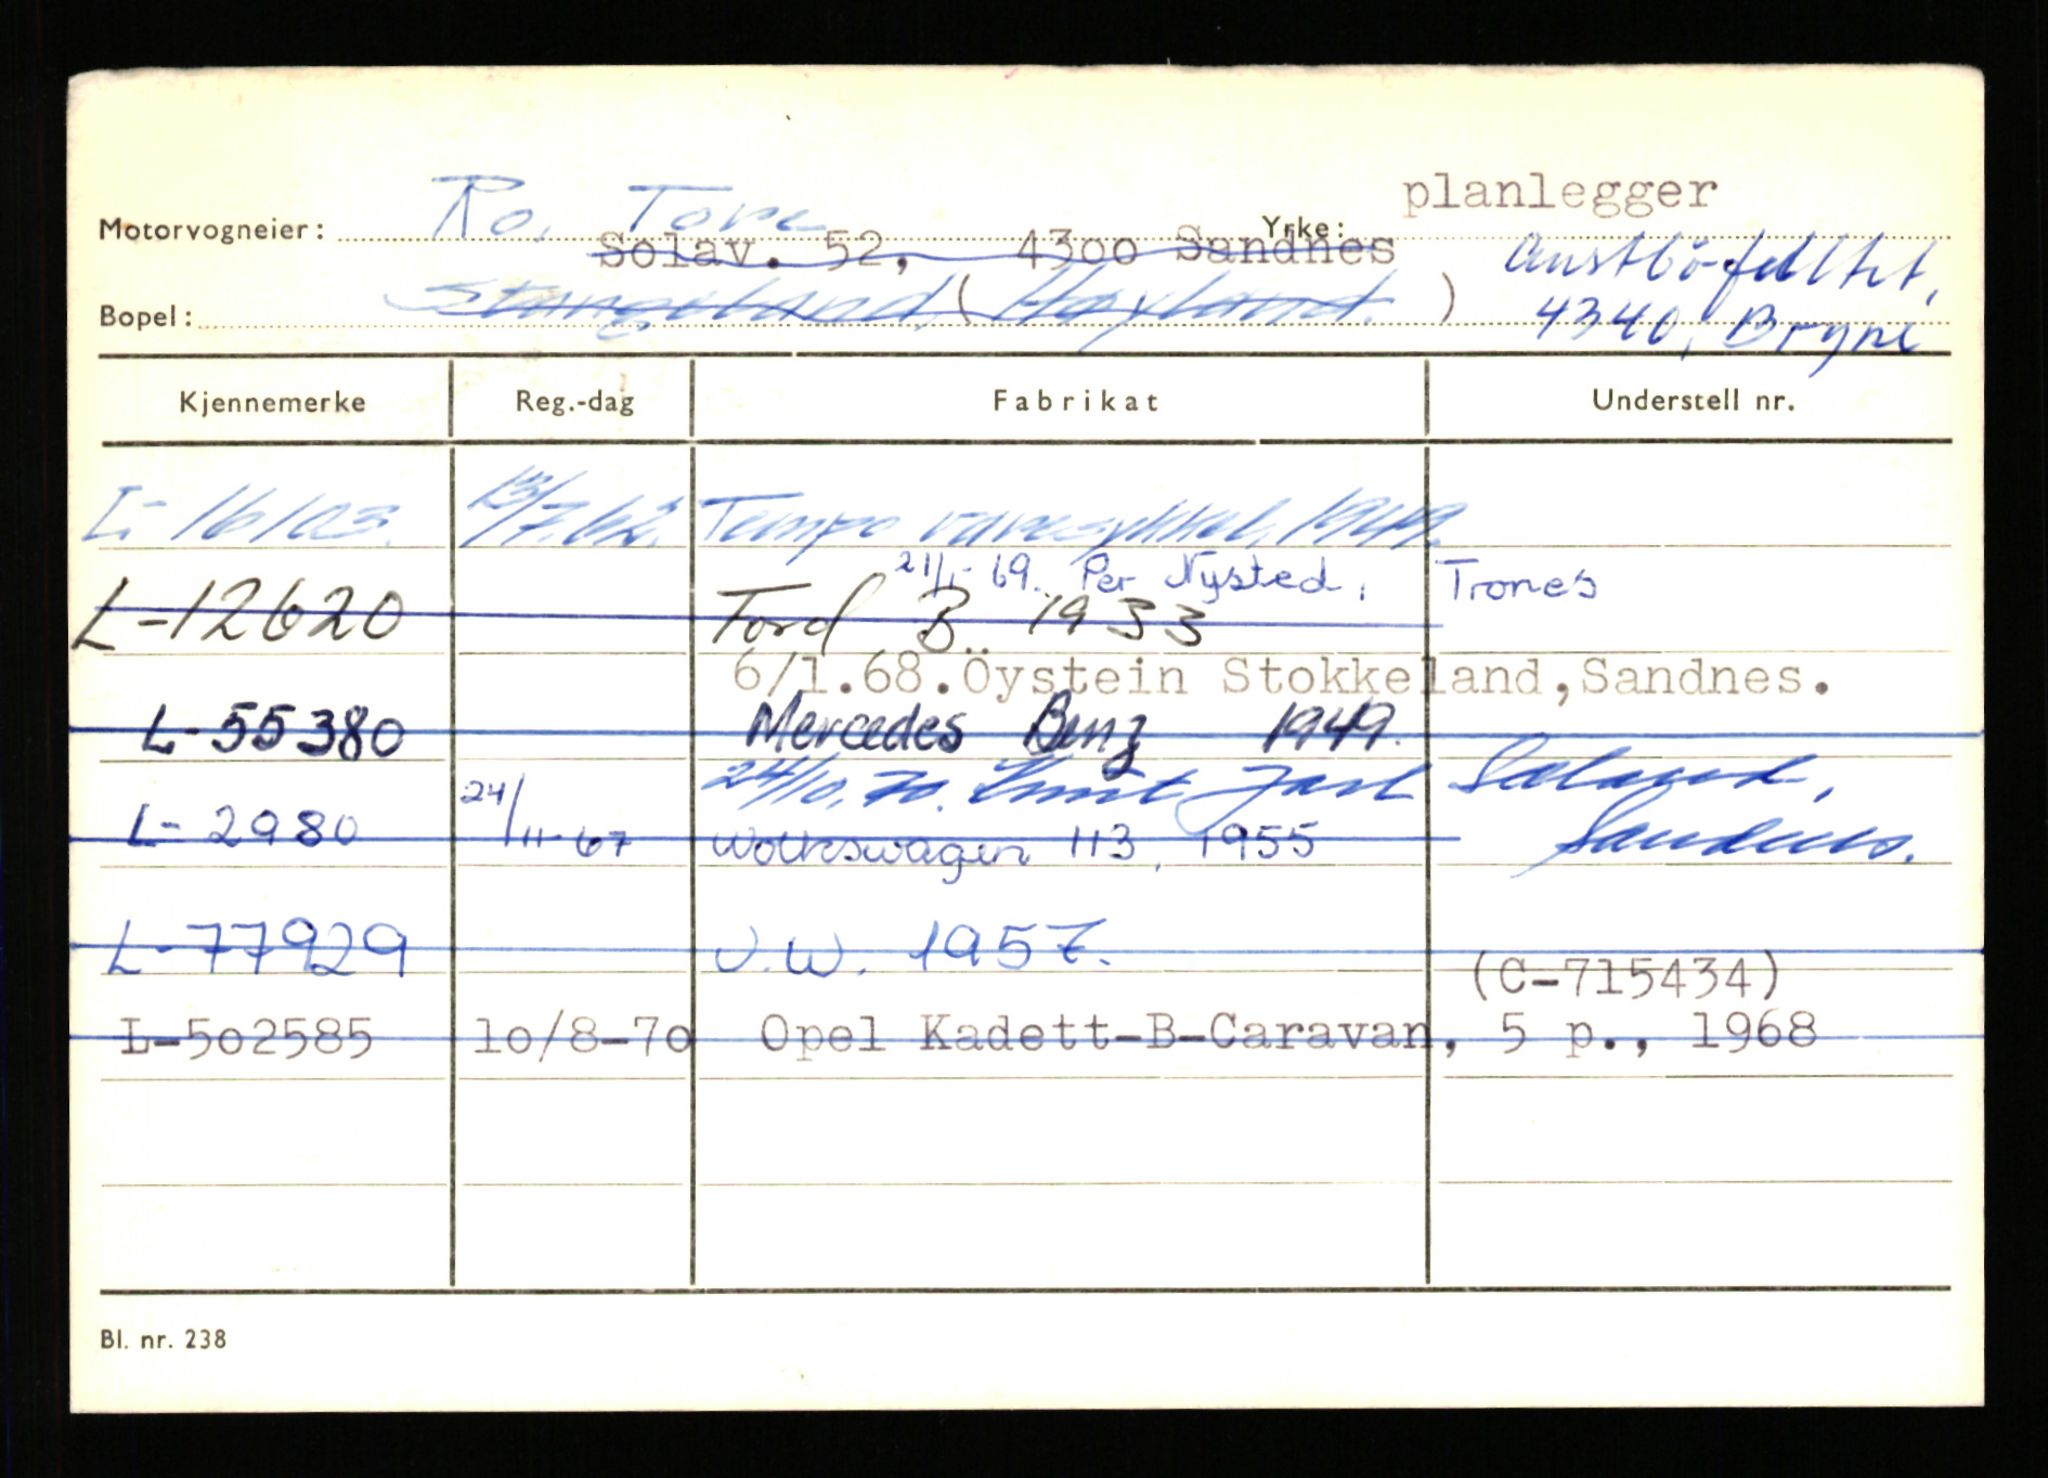 planlegger
Motorvogneier: Ro, Tore Yrke:
Solav. 52, 4300 Sandnes Austbö-feltet,
Bopel: Stangeland (Høyland. ) 4340, Bryne
Kjennemerke Reg.-dag Fabrikat Understell nr.
L-16103. 13/7.62. Tempo varesykkel, 1949.
21/1-69. Per Nysted, Trones
L-12620 Ford B. 1933
6/1.68. Öystein Stokkeland, Sandnes.
L-55380 Mercedes Benz 1949.
24/10.70. Jarl
L-2980 24/11-67 Wolkswagen 113, 1955 Sandnes.
L-77929 V.W. 1957.
(C-715434)
L-502585 10/8-70 Opel Kadett-B-Caravan, 5 p., 1968
Bl. nr. 238